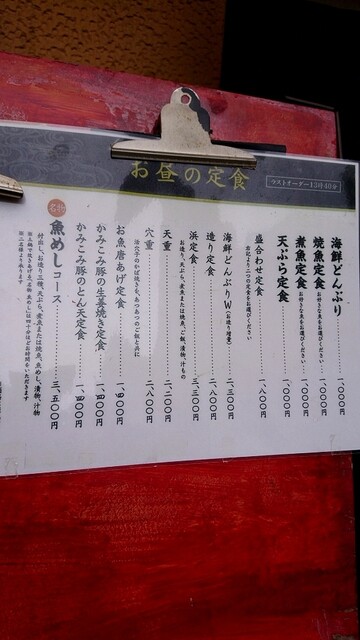 お昼の定食
ラストオーダー13時40分
海鮮どんぶり 一、〇〇〇円
焼魚定食 お好きな魚をお選びください 一、〇〇〇円
煮魚定食 お好きな魚をお選びください 一、〇〇〇円
天ぷら定食 一、〇〇〇円
盛合わせ定食 一、八〇〇円
右記より二つの定食をお選びください
海鮮どんぶりW(お造り増量) 二、三〇〇円
造り定食 二、八〇〇円
浜定食 三、三〇〇円
お造り、天ぷら、煮魚または焼魚、ご飯、漬物、汁もの
天重 一、二〇〇円
穴重 二、八〇〇円
活穴子のかば焼きを、あつあつのご飯と共に
お魚唐あげ定食 一、〇〇円
かみこみ豚の生姜焼き定食 一、〇〇円
かみこみ豚のとん天定食 一、〇〇円
名物
魚めしコース 三、五〇〇円
付出し、お造り三種、天ぷら、煮魚または焼魚、魚めし、漬物、汁物
※二名様より承ります